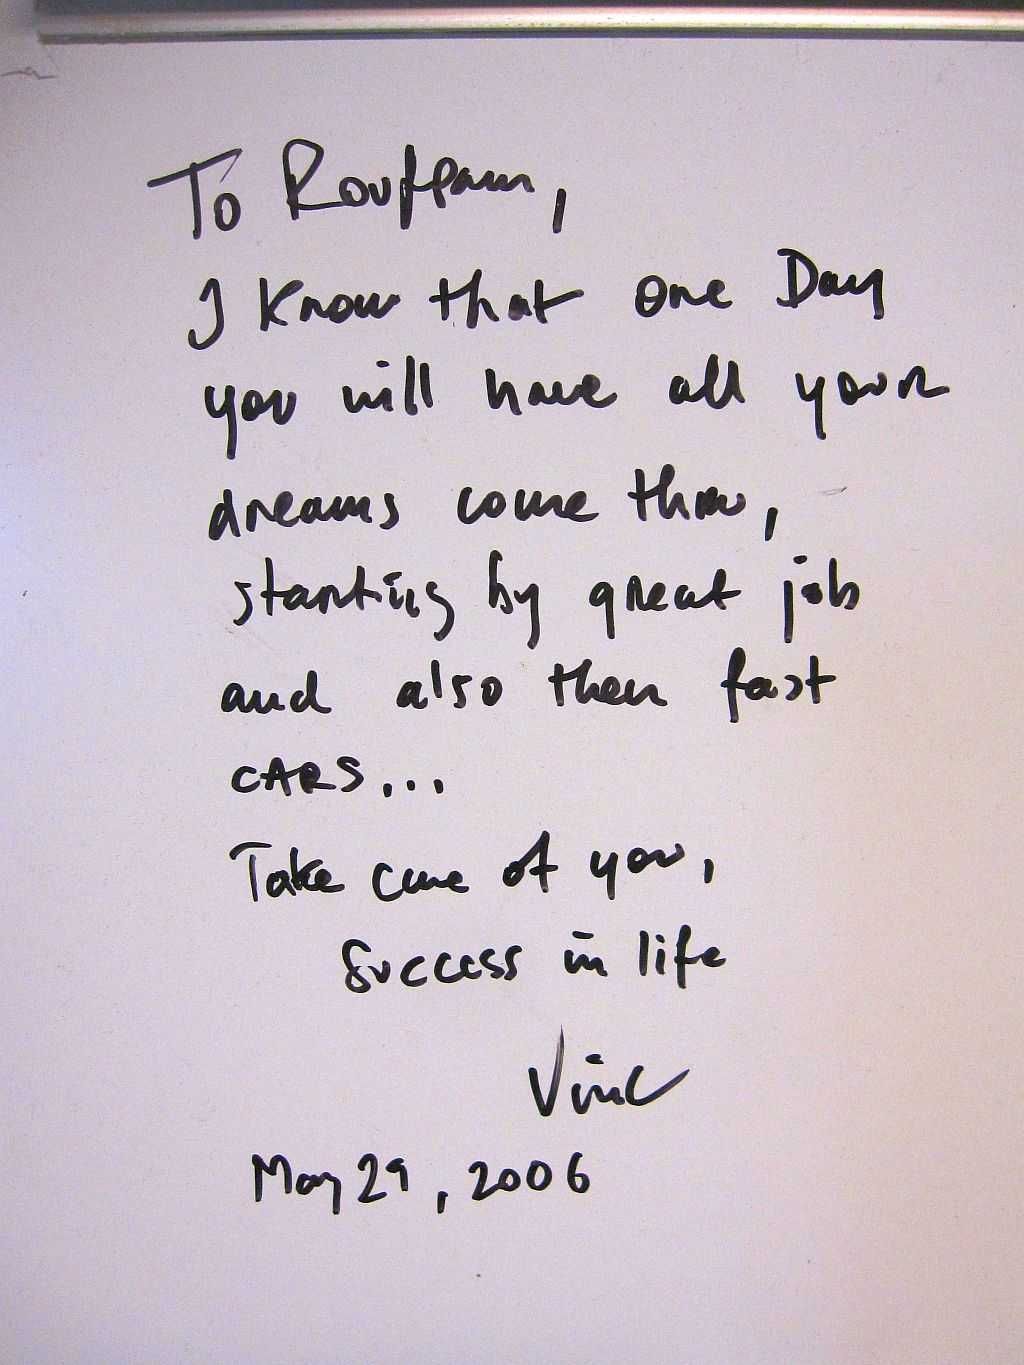 To Roufpam,
I know that one Day
you will have all your
dreams come threw,
starting by great job
and also then fast
CARS...
Take care of you,
Success in life
Vinc
May 29, 2006